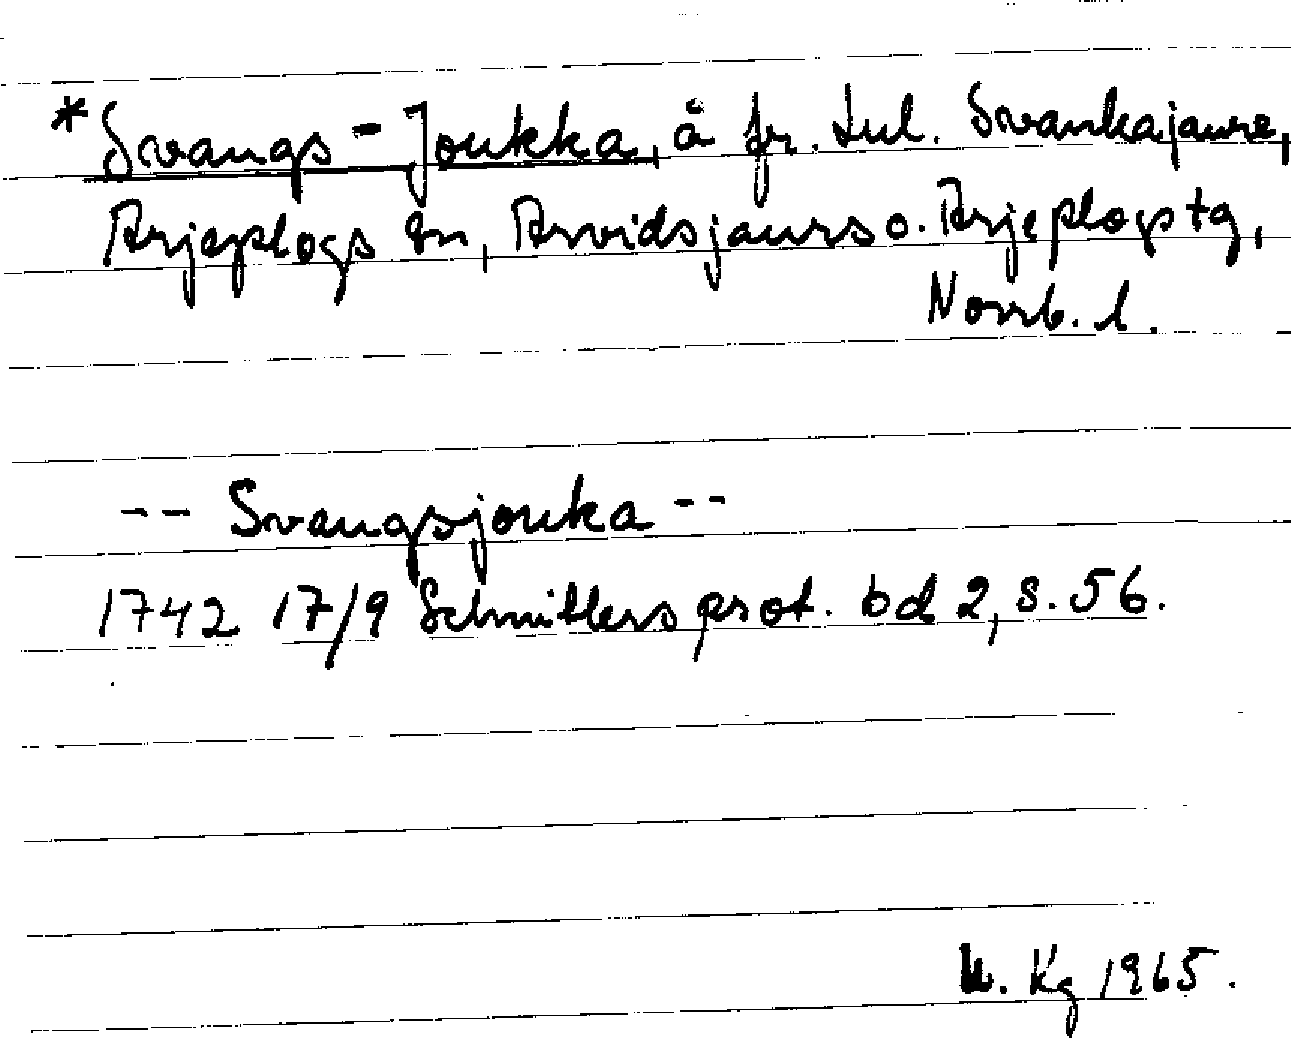 *Svangs-Joukka, å fr. Lul. Svankajaure,
Arjeplogs sn, Arvidsjaurs o. Arjeplogs tg,
Norrb. l.
-- Svangsjouka --
1742 17/9 Schnitlers prot. bd 2, s. 56.
Kg 1965.